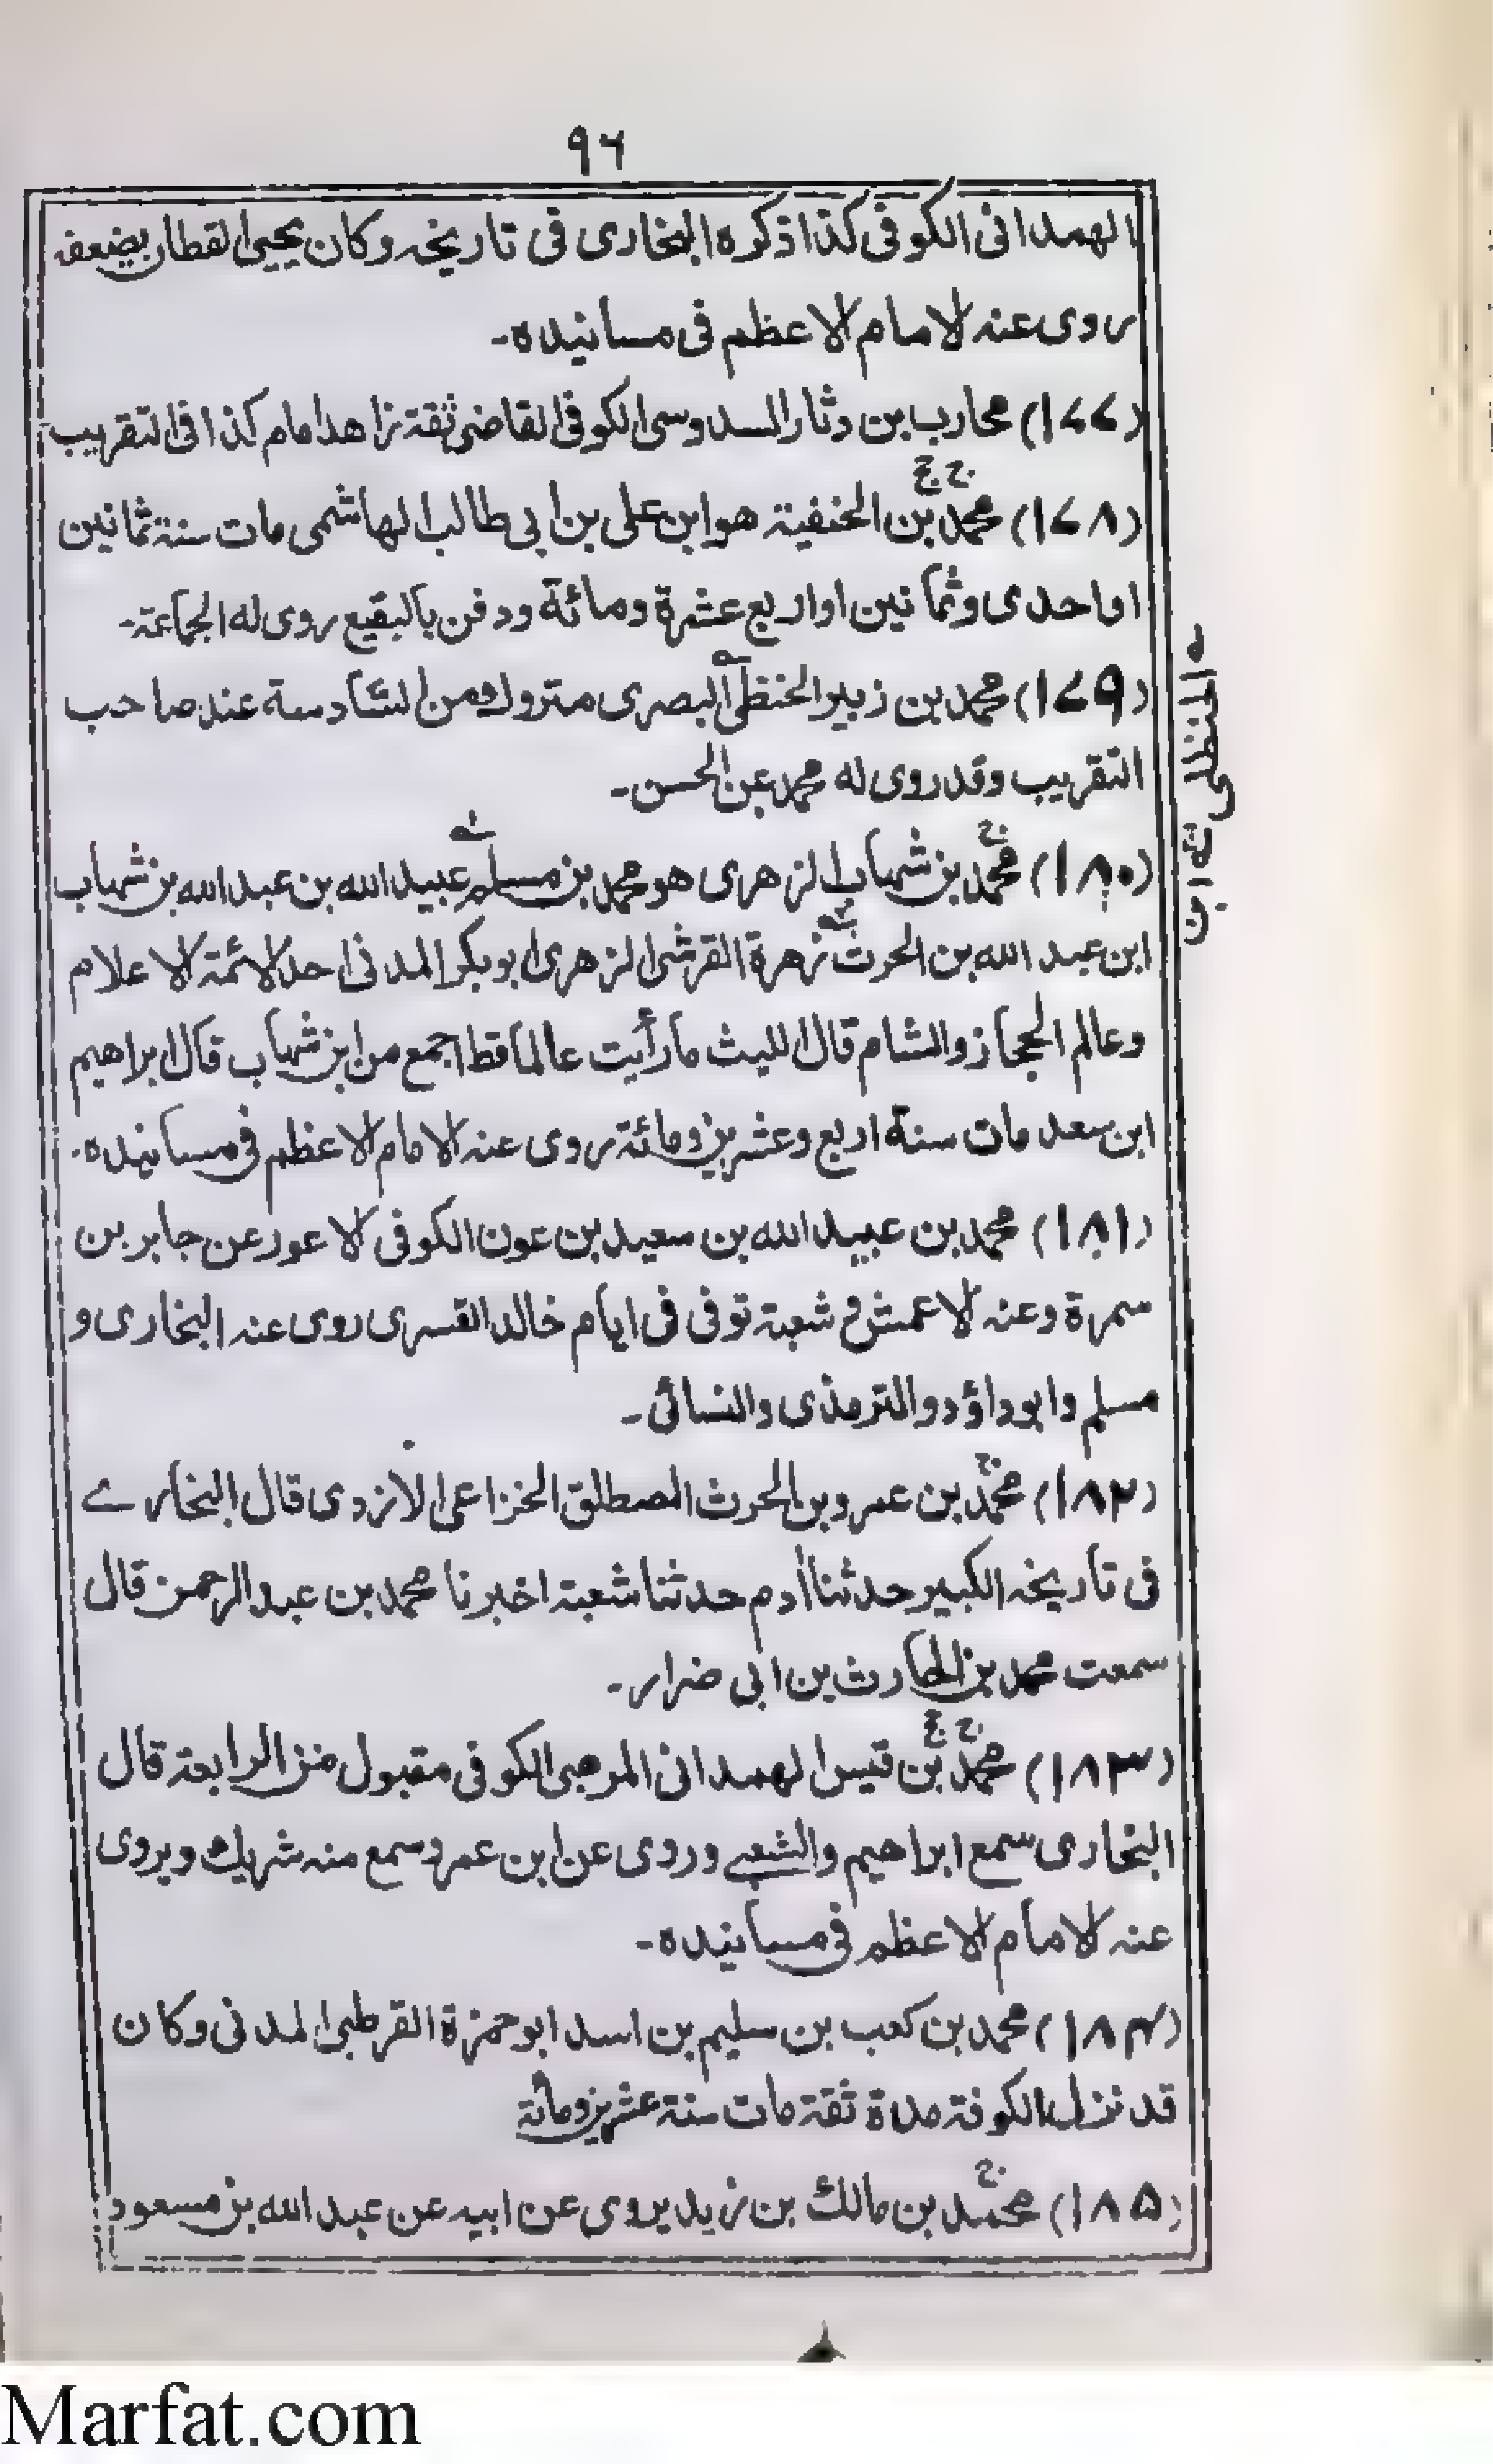 ۹۶
الهمدانی الکوفی کذا ذکره البخاری فی تاریخہ وکان یحیی القطان یضعفہ
روی عنہ الامام الاعظم فی مسانیدہ۔
(۱۷۷) محارب بن دثار السدوسی الکوفی القاضی ثقۃ زاهد امام کذا فی التقریب
(۱۷۸) محمد بن الحنفیۃ هو ابن علی بن ابی طالب الهاشمی مات سنۃ ثمانین
او احدی وثمانین او اربع عشرۃ ومائۃ ودفن بالبقیع روی له الجماعۃ۔
(۱۷۹) محمد بن زبیر الحنظلی البصری متروك من السادسۃ عند صاحب
التقریب وقد روی له محمد عن الحسن۔
(۱۸۰) محمد بن شهاب الزهری هو محمد بن مسلم عبید الله بن عبد الله بن شهاب
ابن عبد الله بن الحرث زهرۃ القرشی الزهری ابو بکر المدنی احد الائمۃ الاعلام
وعالم الحجاز والشام قال اللیث ما رأیت عالما قط اجمع من ابن شهاب قال ابراهیم
ابن سعد مات سنۃ اربع وعشرین ومائۃ روی عنہ الامام الاعظم فی مسانیدہ۔
(۱۸۱) محمد بن عبید الله بن سعید بن عون الکوفی الاعور عن جابر بن
سمرۃ وعنہ الاعمش وشعبۃ توفی فی ایام خالد القسری روی عنہ البخاری و
مسلم وابوداؤد والترمذی والنسائی۔
(۱۸۲) محمد بن عمرو بن الحرث المصطلق الخزاعی الازدی قال البخارے
فی تاریخہ الکبیر حدثنا أدم حدثنا شعبۃ اخبرنا محمد بن عبد الرحمن قال
سمعت محمد بن الحارث بن ابی ضرار۔
(۱۸۳) محمد بن قیس الهمدانی المرهبی الکوفی مقبول من الرابعۃ قال
البخاری سمع ابراهیم والشعبے وروی عن ابن عمر وسمع منہ شریك ویروی
عنہ الامام الاعظم فی مسانیدہ۔
(۱۸۴) محمد بن کعب بن سلیم بن اسد ابو حمزۃ القرطبی المدنی وکان
قد نزل الکوفۃ مدۃ ثقۃ مات سنۃ عشرین ومائۃ
(۱۸۵) محمد بن مالك بن زید یروی عن ابیہ عن عبد الله بن مسعود
الحنظلی
ابن
Marfat.com